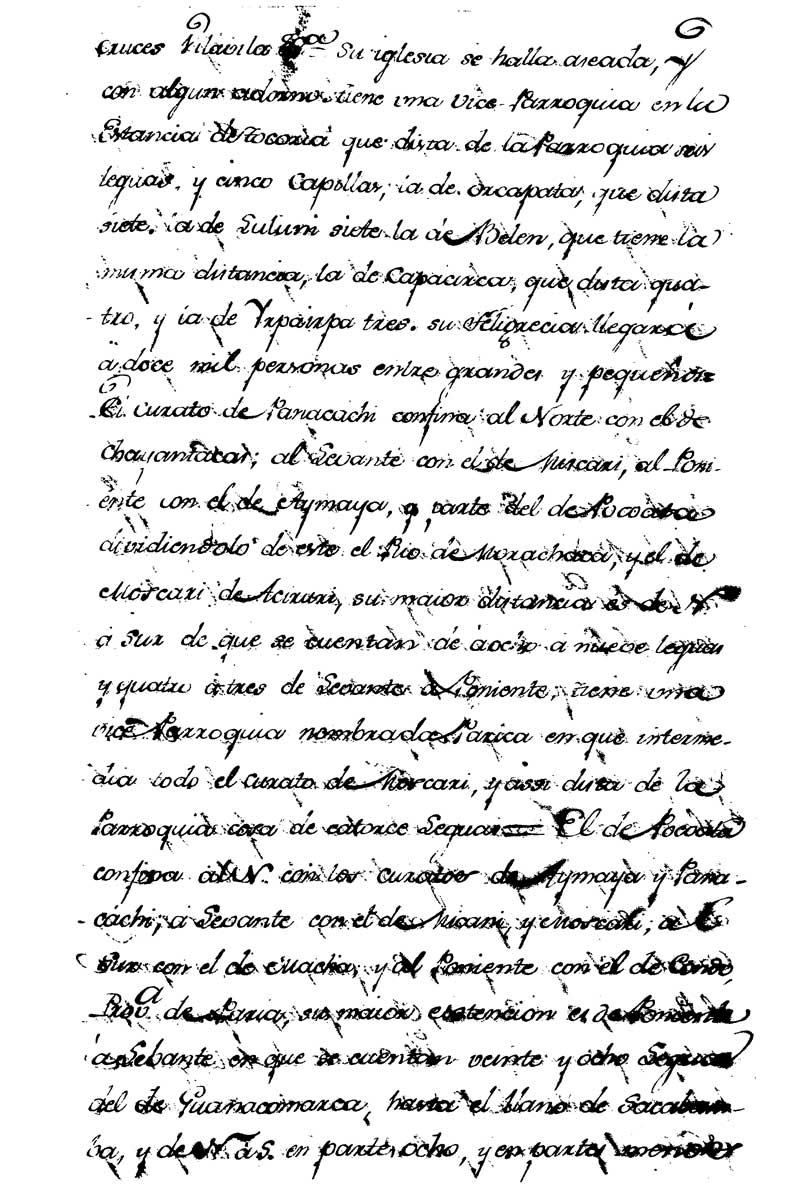 cruces Vilavila &ª Su iglesia se halla aseada, y
con algun adorno. tiene una vice-Parroquia en la
Estancia de Tocoria que dista de la Parroquia seis
leguas, y cinco Capillas, la de Orcapata, que dista
siete. la de Luluni siete la de Belen, que tiene la
misma distancia, la de Capacirca, que dista qua-
tro, y la de Yrpairpa tres. su Feligrecia llegará
á doce mil personas entre grandes y pequeños
El Curato de Panacachi confina al Norte con el de
Chayantacas; al Levante con el de Micani, al Poni-
ente con el de Aymaya, y parte del de Pocoata
dividiendolo de este el Rio de Morachaca, y el de
Moscari de Aciruri, su maior distancia es de N.
á Sur de que se cuentan de ocho a nueve leguas
y quatro á tres de Levante á Poniente, tiene una
vice Parroquia nombrada Parica en que interme-
dia todo el Curato de Moscari, y assi dista de la
Parroquia cosa de catorce Leguas = El de Pocoata
confina al N. con los curatos de Aymaya y Pana-
cachi, á Levante con el de Micani, y Moscari, a
Sur con el de Macha, y al Poniente con el de Condo,
Provª de Paria, su maior estencion es de Poniente
á Lebante en que se cuentan veinte y ocho Leguas
del de Guanacomarca, hasta el llano de Sacabam-
ba, y de N. á S. en partes ocho, y en partes menos